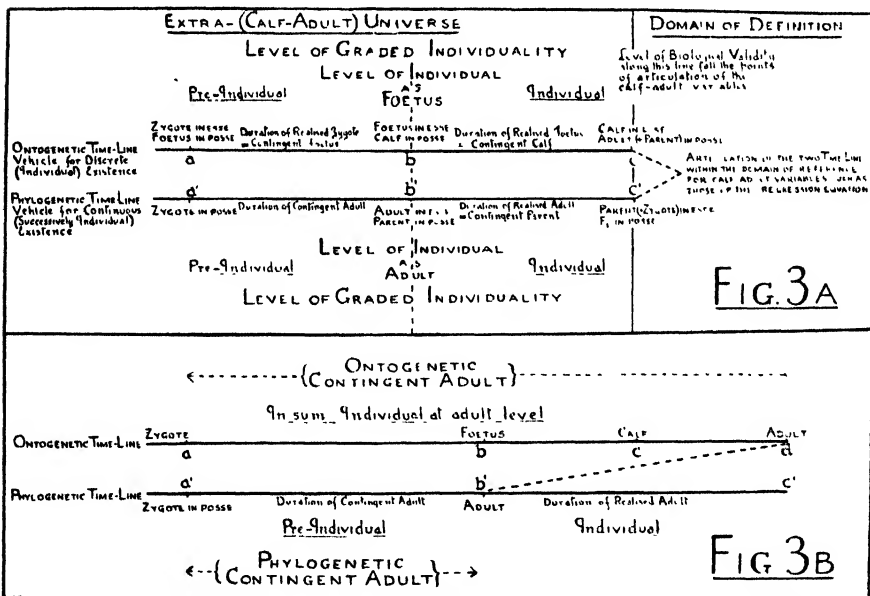 EXTRA-(CALF-ADULT) UNIVERSE
DOMAIN OF DEFINITION
LEVEL OF GRADED INDIVIDUALITY
LEVEL OF INDIVIDUAL
AS
FOETUS
Pre-Individual
Individual
Level of Biological Validity
along this line fall the points
of articulation of the
calf-adult variables
ZYGOTE IN ESSE
FOETUS IN POSSE
Duration of Realised Zygote
= Contingent Foetus
FOETUS IN ESSE
CALF IN POSSE
Duration of Realised Foetus
= Contingent Calf
CALF IN ESSE
ADULT (+PARENT) IN POSSE
ONTOGENETIC TIME-LINE
VEHICLE FOR DISCRETE
(INDIVIDUAL) EXISTENCE
a b c
ARTICULATION OF THE TWO TIME LINE
WITHIN THE DOMAIN OF REFERENCE
FOR CALF ADULT VARIABLES SUCH AS
THOSE OF THE REGRESSION EQUATION
PHYLOGENETIC TIME-LINE
VEHICLE FOR CONTINUOUS
(SUCCESSIVELY INDIVIDUAL)
EXISTENCE
a' b' c'
ZYGOTE IN POSSE
Duration of Contingent Adult
ADULT IN ESSE
PARENT IN POSSE
Duration of Realised Adult
= Contingent Parent
PARENT(=ZYGOTE) IN ESSE
F₁ IN POSSE
Pre-Individual
LEVEL OF INDIVIDUAL
AS
ADULT
Individual
LEVEL OF GRADED INDIVIDUALITY
FIG. 3A
ONTOGENETIC
CONTINGENT ADULT
In sum Individual at adult level
ONTOGENETIC TIME-LINE
ZYGOTE FOETUS CALF ADULT
a b c d
PHYLOGENETIC TIME-LINE
a' b' c'
ZYGOTE IN POSSE
Duration of Contingent Adult
ADULT
Duration of Realised Adult
Pre-Individual
Individual
PHYLOGENETIC
CONTINGENT ADULT
FIG 3B